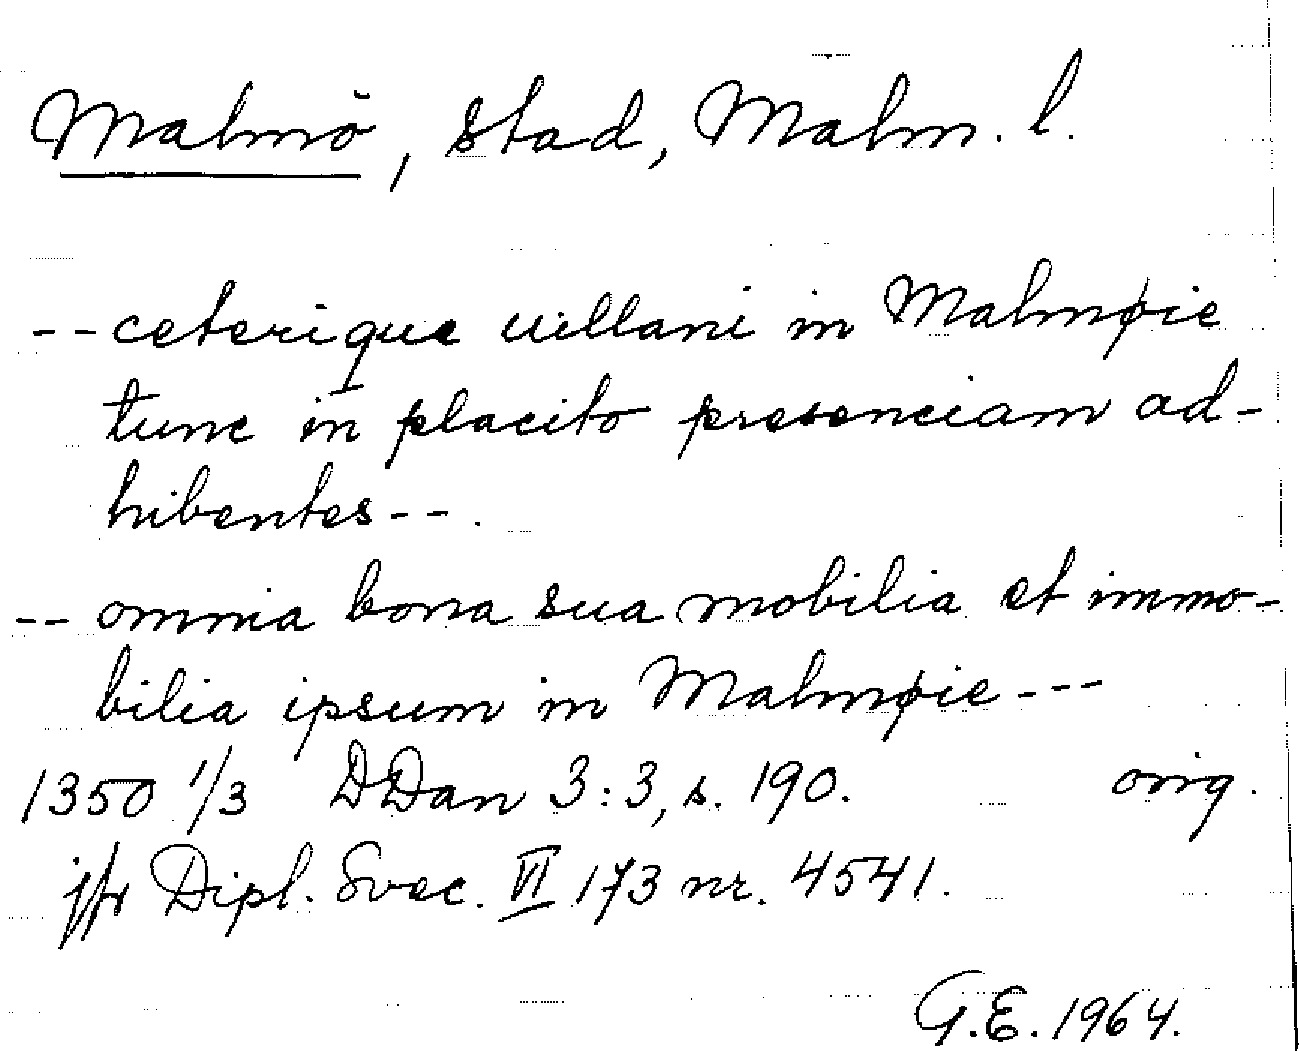 Malmö, stad, Malm. l.
--ceterique uillani in Malmøie
tunc in placito presenciam ad-
hibentes--.
-- omnia bona sua mobilia et immo-
bilia ipsum in Malmøie---
1350 1/3 DDan 3:3, s. 190. orig.
jfr Dipl. Svec. VI 173 nr. 4541.
G.E. 1964.